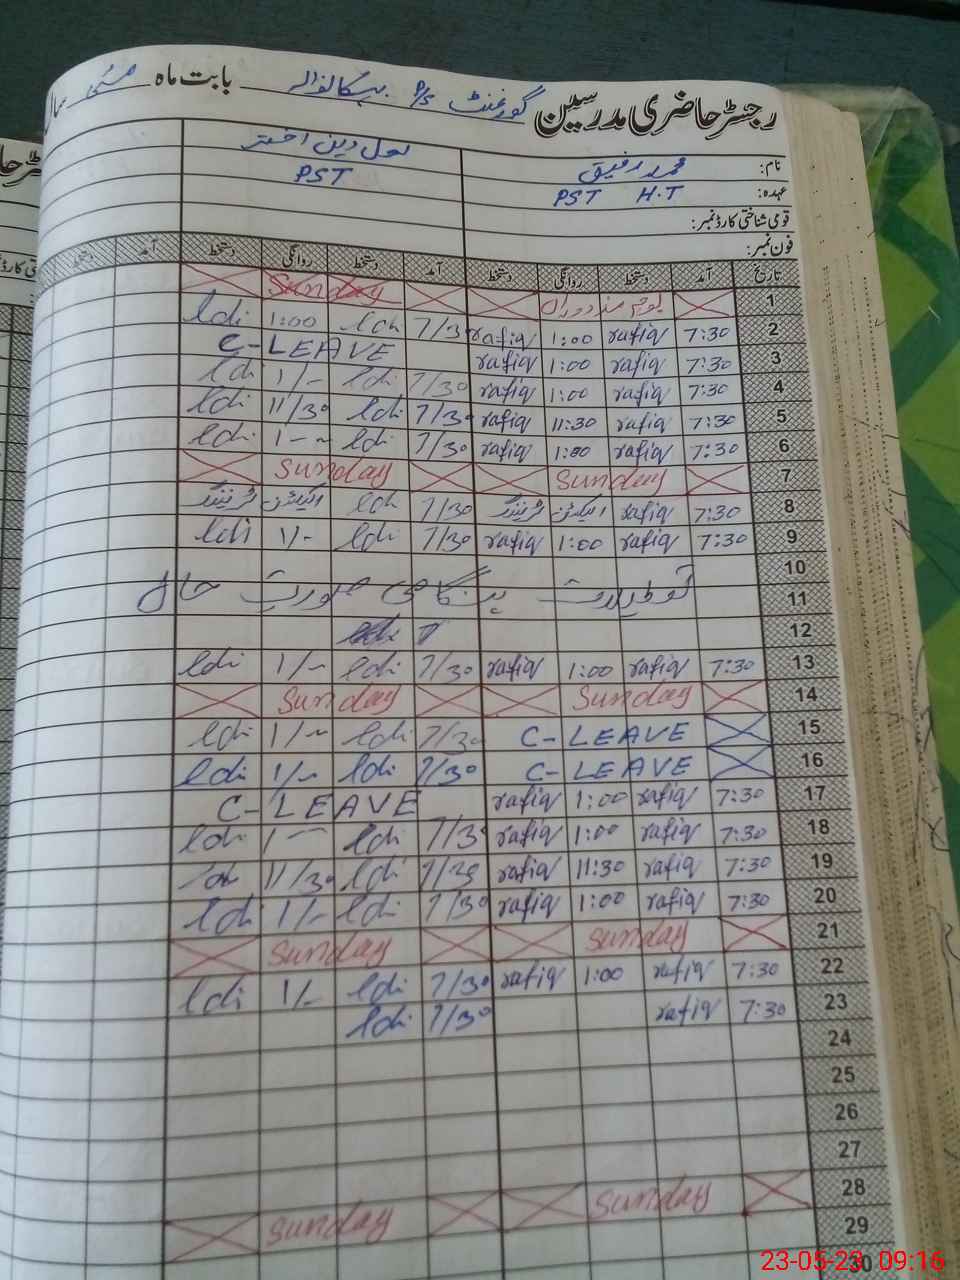 رجسٹر حاضری مدرسین گورنمنٹ P/S بابت ماہ مئی
نام: محمد رفیق لعل دین اختر
عہدہ: PST H.T PST
قومی شناختی کارڈ نمبر:
فون نمبر:
تاریخ آمد دستخط روانگی دستخط آمد دستخط روانگی دستخط آمد دستخط
1 یوم مزدوراں Sunday
2 7:30 rafiq 1:00 rafiq 7/30 ldi 1:00 ldi
3 7:30 rafiq 1:00 rafiq C-LEAVE
4 7:30 rafiq 1:00 rafiq 7/30 ldi 1/- ldi
5 7:30 rafiq 11:30 rafiq 7/30 ldi 11/30 ldi
6 7:30 rafiq 1:00 rafiq 7/30 ldi 1-- ldi
7 Sunday Sunday
8 7:30 rafiq الیکشن ٹریننگ 7/30 ldi الیکشن ٹریننگ
9 7:30 rafiq 1:00 rafiq 7/30 ldi 1/- ldi
10
11 تعطیلات ہنگامی صورت حال
12
13 7:30 rafiq 1:00 rafiq 7/30 ldi 1/- ldi
14 Sunday Sunday
15 C-LEAVE 7/30 ldi 1/- ldi
16 C-LEAVE 7/30 ldi 1/- ldi
17 7:30 rafiq 1:00 rafiq C-LEAVE
18 7:30 rafiq 1:00 rafiq 7/30 ldi 1-- ldi
19 7:30 rafiq 11:30 rafiq 7/30 ldi 11/30
20 7:30 rafiq 1:00 rafiq 7/30 ldi 1/- ldi
21 Sunday Sunday
22 7:30 rafiq 1:00 rafiq 7/30 ldi 1/- ldi
23 7:30 rafiq 7/30 ldi
24
25
26
27
28 Sunday Sunday
29
30
23-05-23 09:16